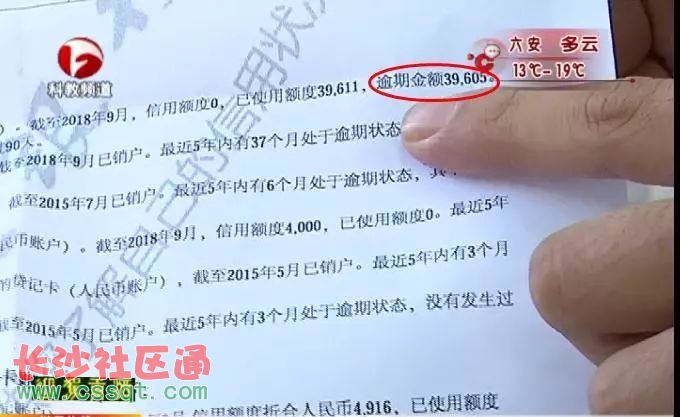 科教频道
六安 多云
13℃-19℃
)。截至2018年9月，信用额度0，已使用额度39,611，逾期金额39,605。
过90天。
截至2018年9月已销户。最近5年内有37个月处于逾期状态
截至2015年7月已销户。最近5年内有6个月处于逾期状态，其
民币账户）。截至2018年9月，信用额度4,000，已使用额度0。最近5年
的贷记卡（人民币账户），截至2015年5月已销户。最近5年内有3个月
截至2015年5月已销户。最近5年内有3个月处于逾期状态，没有发生过
了解自己的信用状况
长沙社区通
www.cssqt.com
信用额度折合人民币4,916，已使用额度